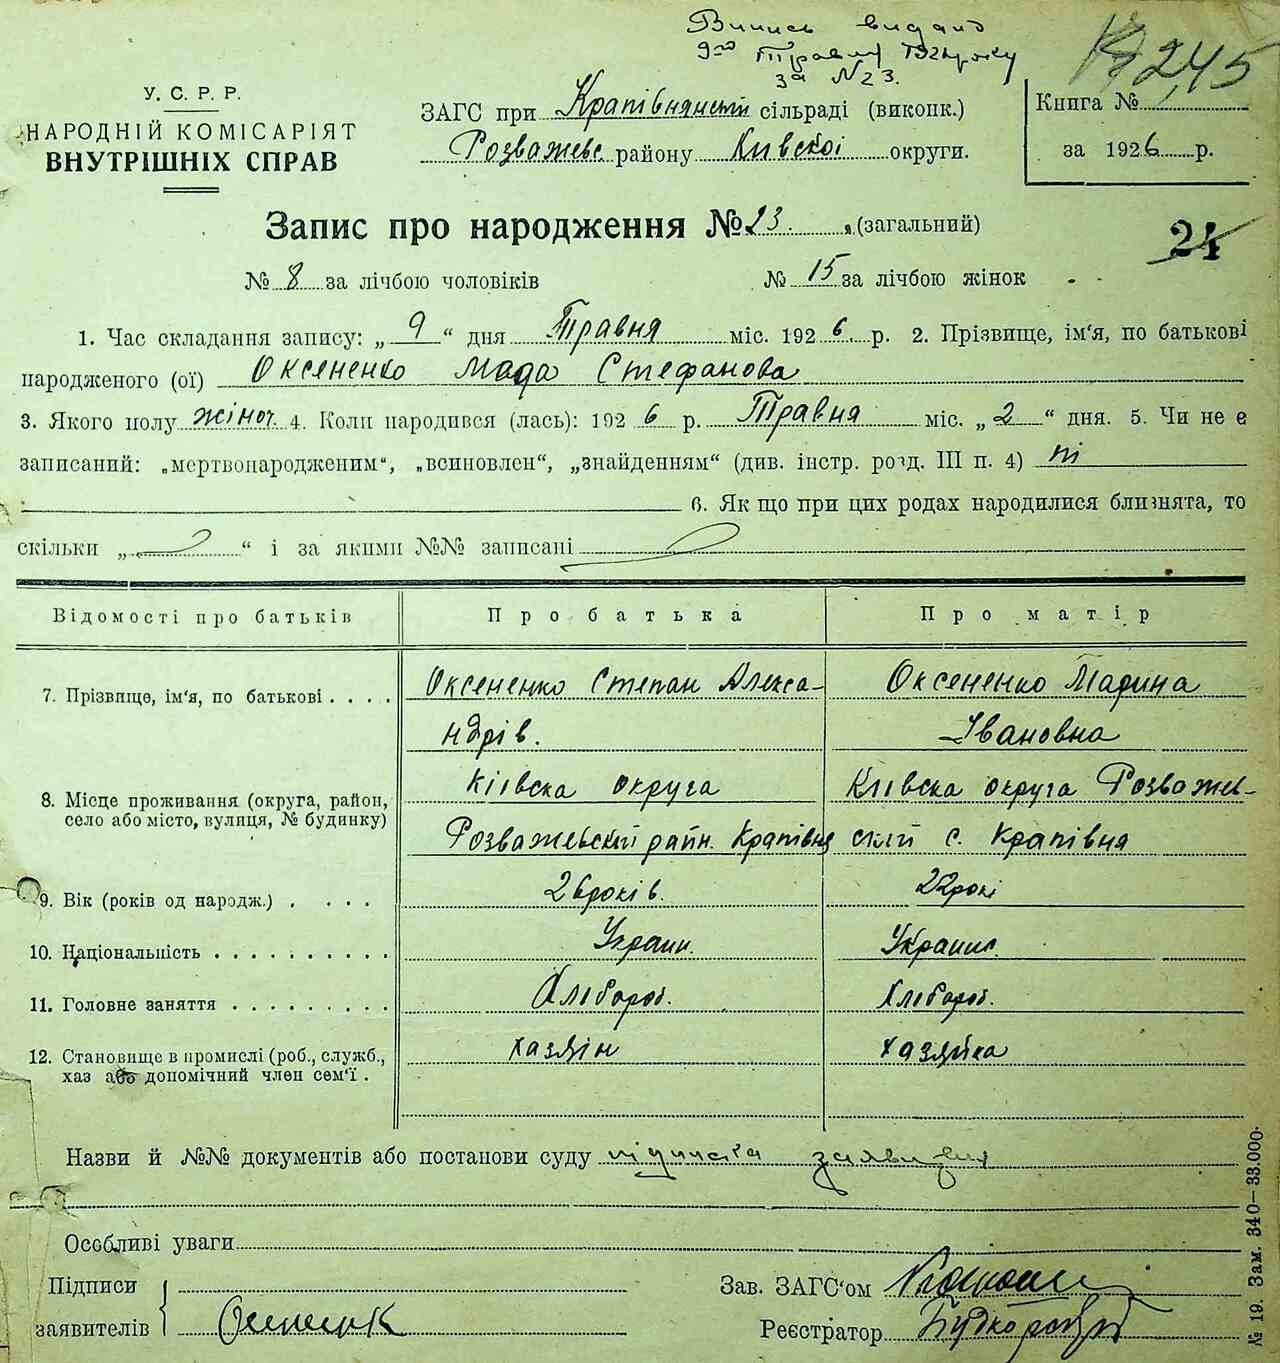 Випись видано
9го Травня 1926 року
за №23.
245
У. С. Р. Р.
НАРОДНІЙ КОМІСАРІЯТ
ВНУТРІШНІХ СПРАВ
ЗАГС при Крапівнянській сільраді (виконк.)
Розважевс району Киівскоі округи.
Книга №
за 1926 р.
Запис про народження № 23. (загальний)
24
№ 8 за лічбою чоловіків
№ 15 за лічбою жінок
1. Час складання запису: „ 9 “ дня Травня міс. 1926. р. 2. Прізвище, ім'я, по батькові
народженого (ої) Оксененко Мада Стефанова
3. Якого полу жіноч. 4. Коли народився (лась): 1926 р. Травня міс. „ 2 “ дня. 5. Чи не є
записаний: „мертвонародженим“, „всиновлен“, „знайденням“ (див. інстр. розд. III п. 4) ні
6. Як що при цих родах народилися близнята, то
скільки „ “ і за якими №№ записані
Відомості про батьків
Про батька
Про матір
7. Прізвище, ім'я, по батькові . . . .
Оксененко Степан Алекса-
ндрів.
Оксененко Марина
Івановна
8. Місце проживання (округа, район,
село або місто, вулиця, № будинку)
Киівска округа
Розважевський райн. Крапівня
Киівска округа Розважев-
ский с. Крапівня
9. Вік (років од народж.) . . . .
26 років.
22 рокі
10. Національність . . . . . . . . . .
Украин.
Украинс.
11. Головне заняття . . . . . . . . .
Хлебороб.
Хлебороб.
12. Становище в промислі (роб., служб.,
хаз або допомічний член сем'ї .
хазяін
хазяйка
Назви й №№ документів або постанови суду підписка
Особливі уваги
Підписи
заявителів
Зав. ЗАГС'ом
Реєстратор
№ 19. Зам. 340—33.000.